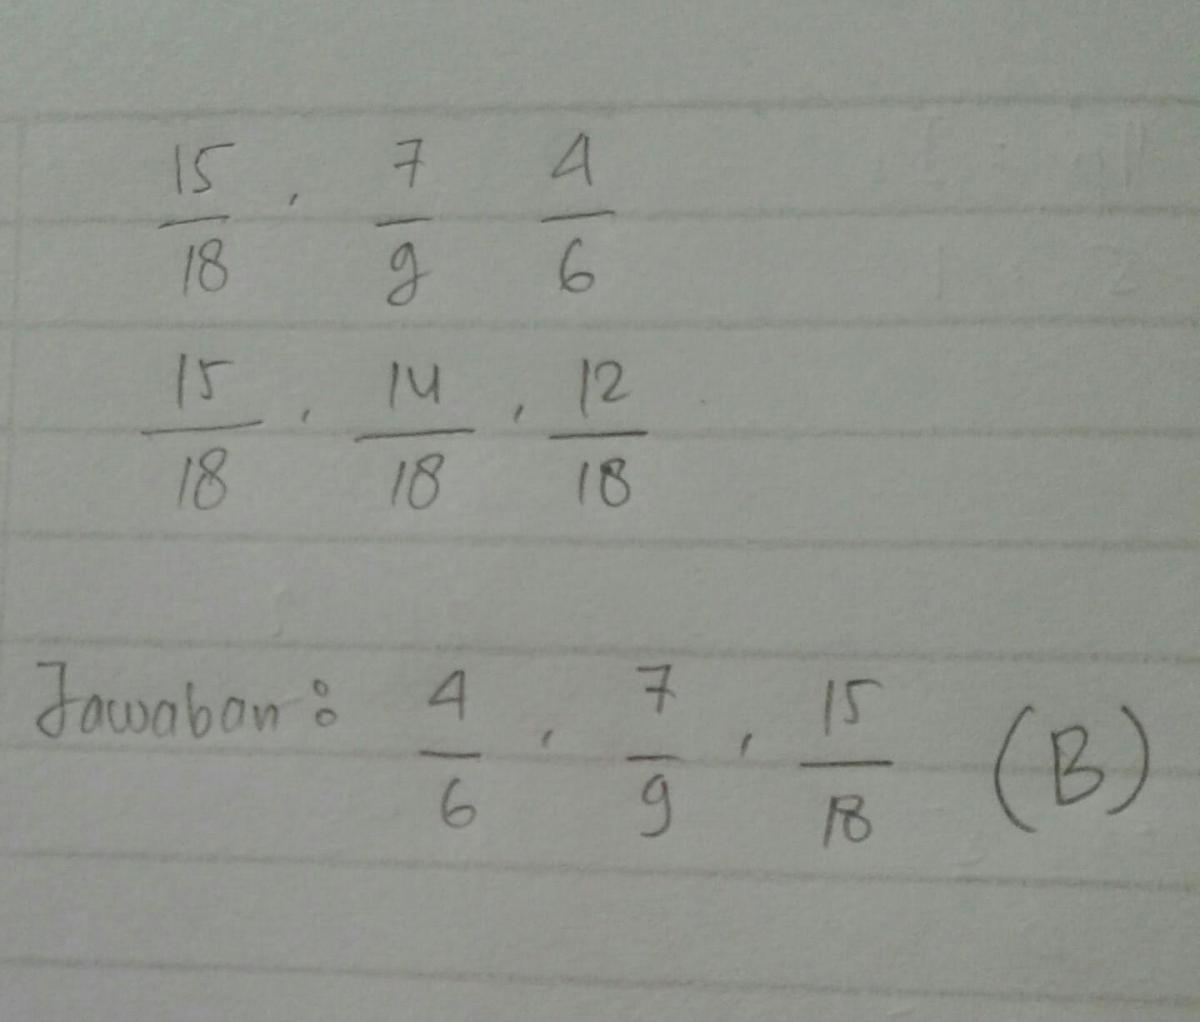 15/18 , 7/9 4/6
15/18 , 14/18 , 12/18
Jawaban : 4/6 , 7/9 , 15/18 (B)